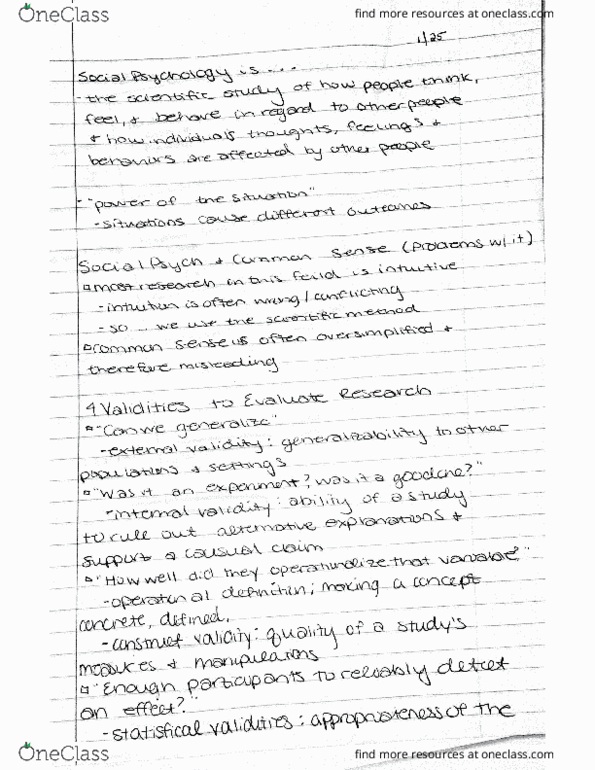 OneClass
find more resources at oneclass.com
1/25
Social Psychology is ...
- the scientific study of how people think,
feel, & behave in regard to other people
& how individuals thoughts, feelings &
behaviors are affected by other people
- "power of the situation"
- situations cause different outcomes
Social Psych & Common Sense (Problems w/ it)
most research in this feild is intuitive
- intuition is often wrong/conflicting
- so ... we use the scientific method
common sense is often oversimplified &
therefore misleading
4 Validities to Evaluate Research
"Can we generalize"
- external validity: generalizability to other
populations & settings
"Was it an experiment? was it a good one?"
- internal validity: ability of a study
to rule out alternative explanations &
support a causual claim
"How well did they operationalize that variable"
- operational definition; making a concept
concrete, defined.
- construct validity: quality of a study's
measures & manipulations
"Enough participants to reliably detect
an effect?"
- statistical validities: appropriateness of the
OneClass
find more resources at oneclass.com